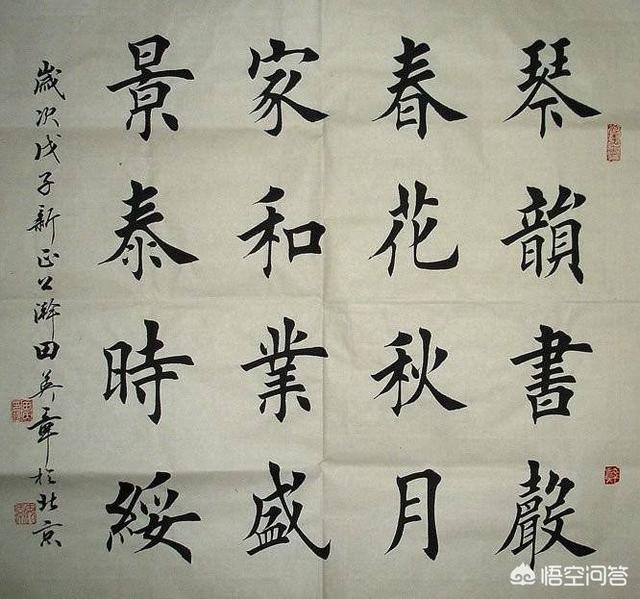 琴韻書聲
春花秋月
家和業盛
景泰時綏
歲次戊子新正公澣田英章於北京
悟空问答